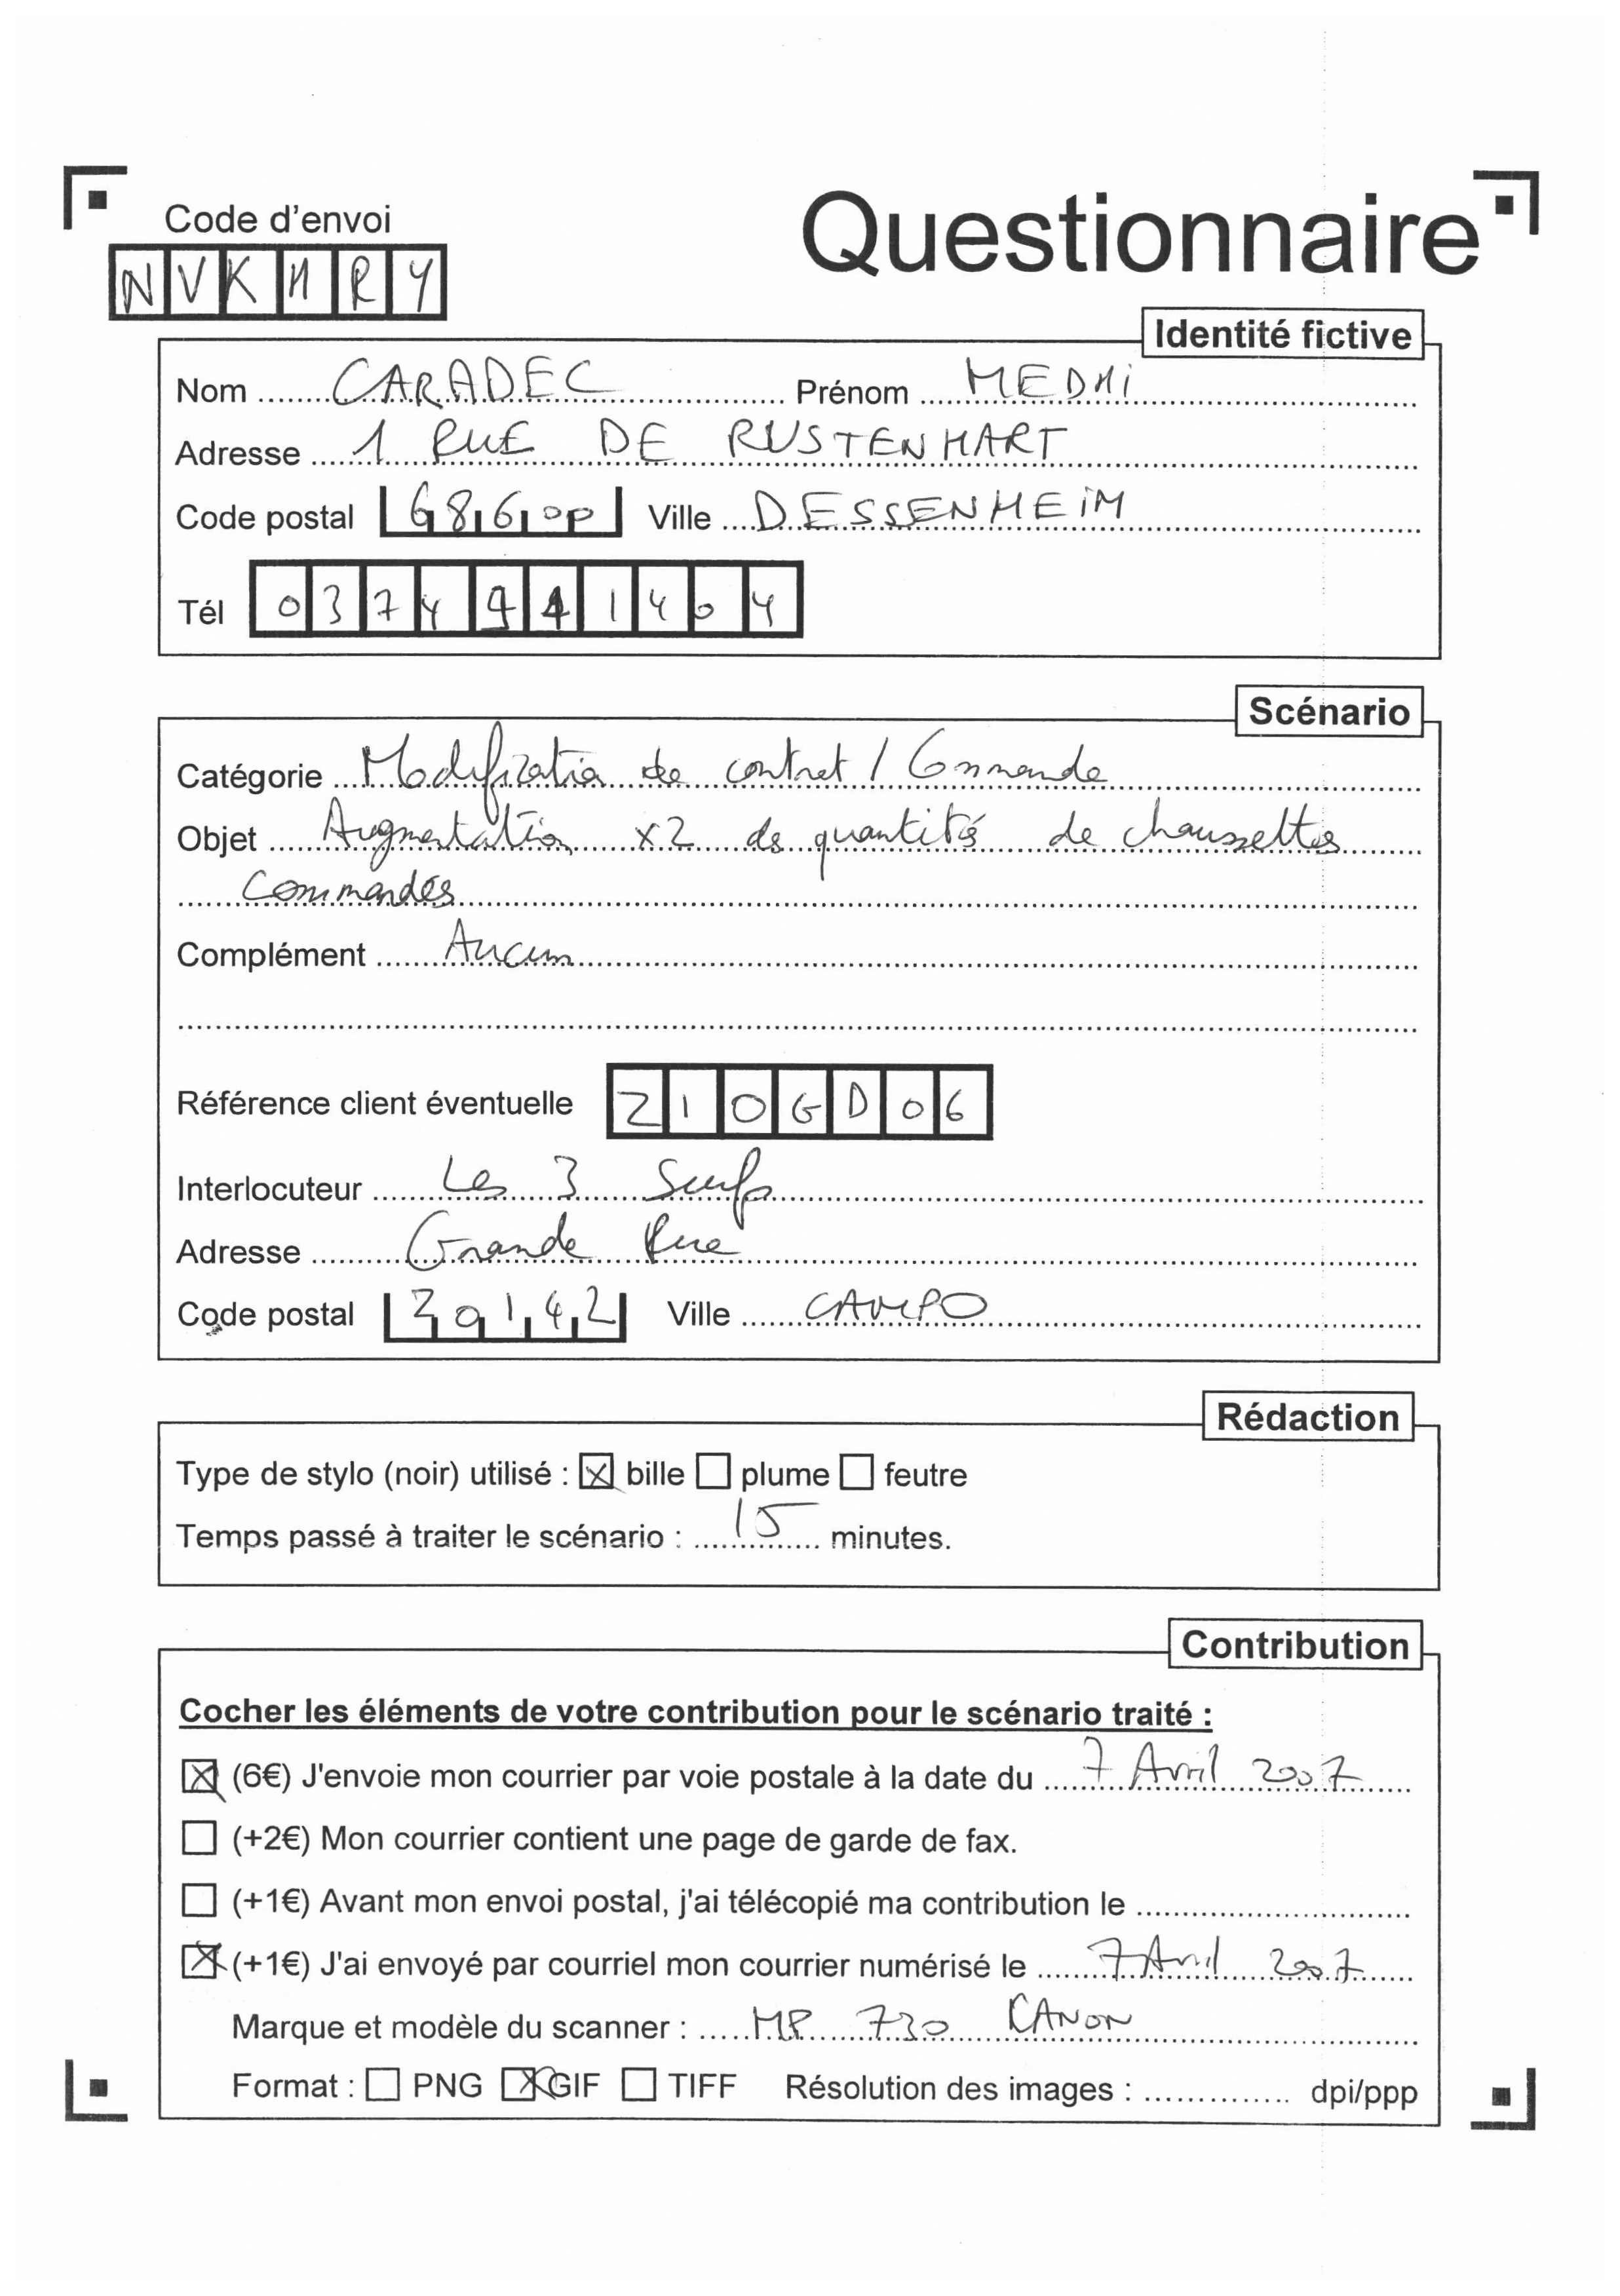 Code d'envoi
Questionnaire
NVKMRY
Identité fictive
Nom CARADEC Prénom MEDHI
Adresse 1 RUE DE RUSTENHART
Code postal 68600 Ville DESSENHEIM
Tél 0374941404
Scénario
Catégorie Modification de contrat / Commande
Objet Augmentation x2 de quantités de chaussettes
Commandés
Complément Aucun
Référence client éventuelle Z10GD06
Interlocuteur Les 3 Surfs
Adresse Grande Rue
Code postal 20142 Ville CAMPO
Rédaction
Type de stylo (noir) utilisé : ☒ bille ☐ plume ☐ feutre
Temps passé à traiter le scénario : 15 minutes.
Contribution
Cocher les éléments de votre contribution pour le scénario traité :
☒ (6€) J'envoie mon courrier par voie postale à la date du 7 Avril 2007
☐ (+2€) Mon courrier contient une page de garde de fax.
☐ (+1€) Avant mon envoi postal, j'ai télécopié ma contribution le
☒ (+1€) J'ai envoyé par courriel mon courrier numérisé le 7 Avril 2007
Marque et modèle du scanner : MP 730 CANON
Format : ☐ PNG ☒ GIF ☐ TIFF Résolution des images : dpi/ppp